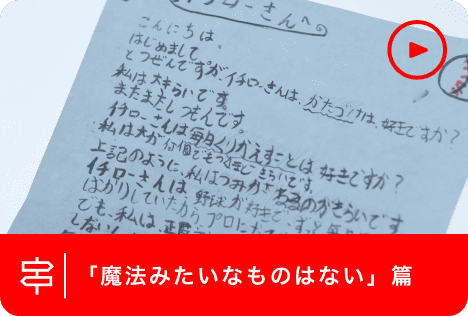 イチローさんへ。
こんにちは。
はじめまして
とつぜんですがイチローさんは、かたづけは、好きですか？
私は大きらいです。
またまたしつもんです。
イチローさんは毎日くりかえすことは好きですか？
私は木が何個でもつくほどきらいです。
上記のように、私はつみかさねるのがきらいです
イチローさんは野球が好きで、ずっと
ばかりしていたからプロに
でも、私は、正直
しない
「魔法みたいなものはない」篇